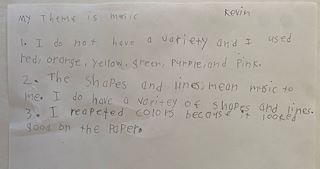 My Theme is music Kevin
1. I do not have a variety and I used
red, orange, yellow, green, purple, and pink.
2. The shapes and lines, mean music to
me. I do have a varitey of shapes and lines.
3. I reapeted colors because it looked
good on the paper.